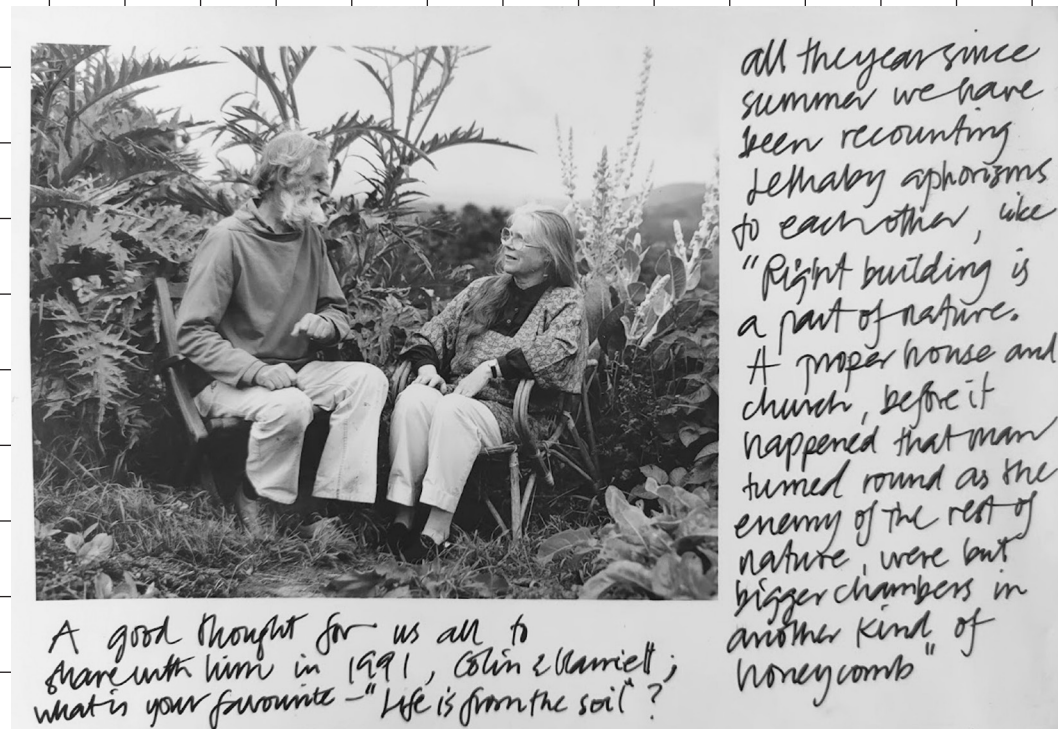 all the year since
summer we have
been recounting
Lethaby aphorisms
to each other, like
"Right building is
a part of nature.
A proper house and
church, before it
happened that man
turned round as the
enemy of the rest of
nature, were but
bigger chambers in
another kind of
honeycomb"
A good thought for us all to
share with him in 1991, Colin & Harriet;
what is your favourite - "Life is from the soil"?